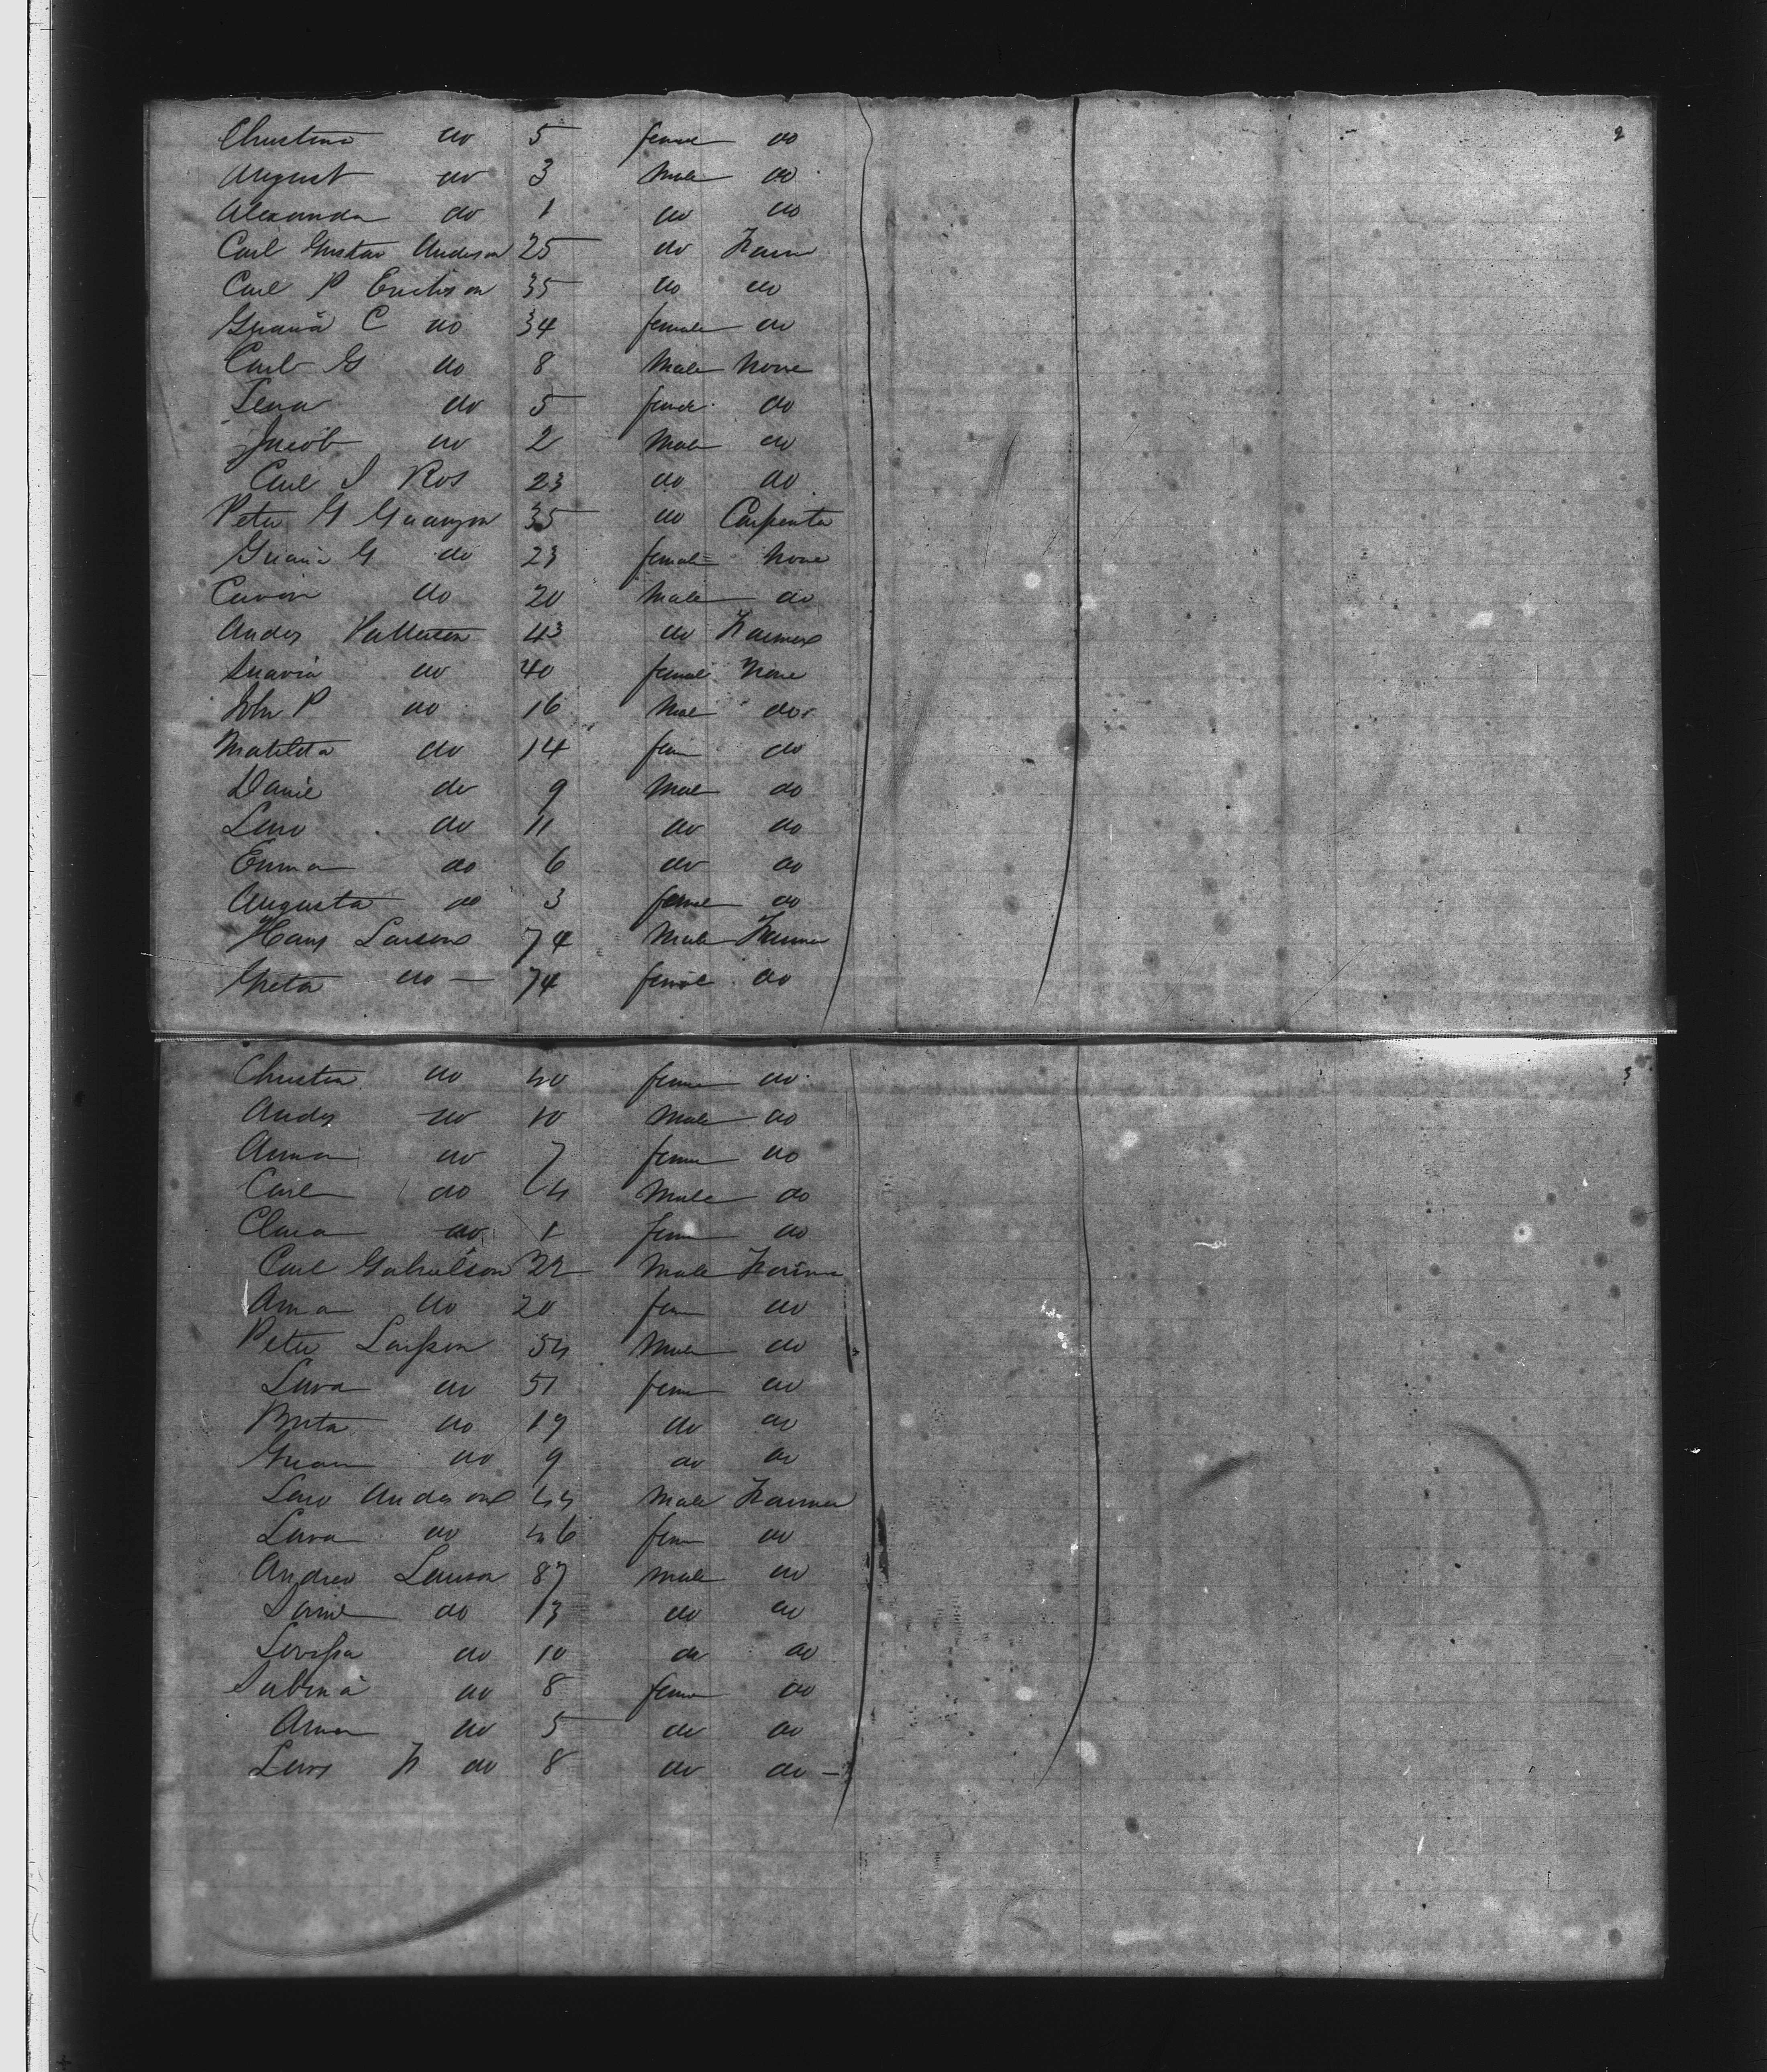 2
Christina do 5 female do
August do 3 Male do
Alexander do 1 do do
Carl Gustav Anderson 25 do Farmer
Carl P Erickson 35 do do
C do 34 female do
Carl G do 8 Male None
Lena do 5 female do
Jacob do 2 Male do
Carl J Ros 23 do do
Peter G 35 do Carpenter
G do 23 female None
do 20 Male do
Anders 43 do Farmer
do 40 female None
John P do 16 Male do
Matilda do 14 fem do
Daniel do 9 Male do
do 11 do do
Emma do 6 do do
Augusta do 3 female do
Hans Larson 74 Male Farmer
Greta do — 74 female do
3
Christin do 40 female do
Anders do 10 Male do
Anna do 7 female do
Carl do 4 Male do
Clara do 1 fem do
Carl Gabrielson 22 Male Farmer
Anna do 20 fem do
Peter Larsson 54 Male do
do 51 fem do
Brita do 19 do do
do 9 do do
Anderson 44 Male Farmer
do 46 fem do
Andrew 87 Male do
do 13 do do
Lovissa do 10 do do
Sabina do 8 female do
Anna do 5 do do
do 8 do do —